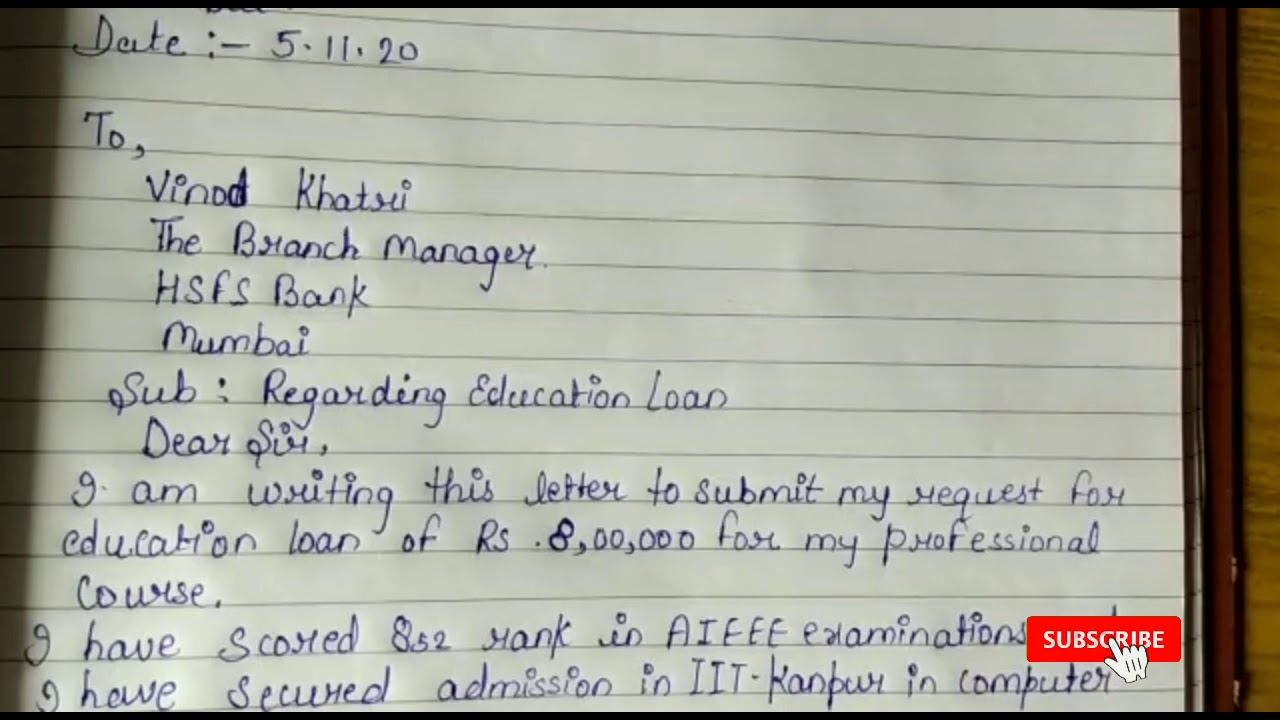 Date :- 5.11.20
To,
Vinod Khatri
The Branch Manager.
HSFS Bank
Mumbai
Sub : Regarding Education Loan
Dear Sir,
I am writing this letter to submit my request for
education loan of Rs. 8,00,000 for my professional
Course.
I have scored 852 rank in AIEEE examinations
SUBSCRIBE
I have secured admission in IIT-Kanpur in computer